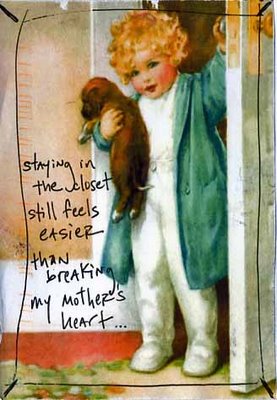 staying in
the closet
still feels
easier
than
breaking
my mother's
heart...